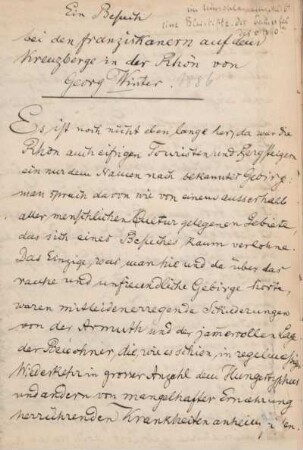 Ein Besuch
bei den Franziskanern auf dem
Kreuzberge in der Rhön von
Georg Winter. 1886
Es ist noch nicht eben lange her, da war die
Rhön auch eifrigen Touristen und Bergsteigern
ein nur dem Namen nach bekanntes Gebirge
man sprach davon wie von einem ausserhalb
aller menschlichen Cultur gelegenen Gebiete
das sich eines Besuches kaum verlohne.
Das Einzige was man hie und da über das
rauhe und unfreundliche Gebirge hörte,
waren mitleidenerregende Schilderungen
von der Armuth und der jammervollen Lage
der Bewohner, die, wie es schien, in regelmässiger
Wiederkehr in grosser Anzahl dem Hungertyphus
und andern von mangelhafter Ernährung
herrührenden Krankheiten anheim